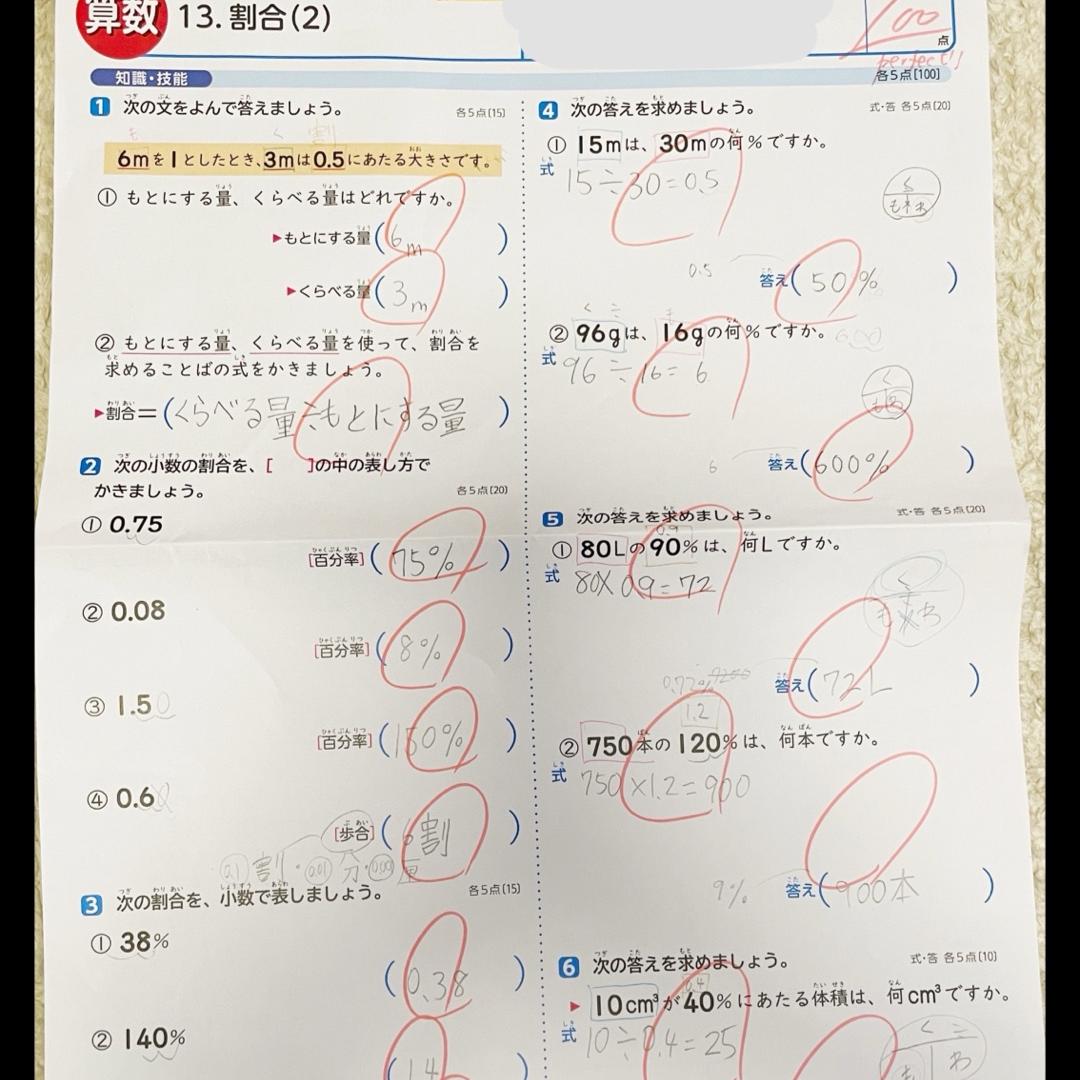 算数 13. 割合(2)
100
点
perfect!!
各5点[100]
知識・技能
1 次の文をよんで答えましょう。 各5点[15]
も く 割
6mを1としたとき、3mは0.5にあたる大きさです。
① もとにする量、くらべる量はどれですか。
▶もとにする量( 6m )
▶くらべる量( 3m )
② もとにする量、くらべる量を使って、割合を
求めることばの式をかきましょう。
▶割合=(くらべる量÷もとにする量)
2 次の小数の割合を、[ ]の中の表し方で
かきましょう。 各5点[20]
① 0.75
[百分率]( 75% )
② 0.08
[百分率]( 8% )
③ 1.50
[百分率]( 150% )
④ 0.6
[歩合]( 6割 )
0.1 割・0.01 分・0.001 厘
3 次の割合を、小数で表しましょう。 各5点[15]
① 38%
( 0.38 )
② 140%
( 1.4
4 次の答えを求めましょう。 式・答 各5点[20]
① 15mは、30mの何%ですか。
式 15÷30=0.5
く
も わ
0.5 答え( 50% )
く ÷ も
② 96gは、16gの何%ですか。 600
式 96÷16=6
く
も わ
6 答え( 600% )
5 次の答えを求めましょう。 式・答 各5点[20]
0.9
① 80Lの90%は、何Lですか。
式 80×0.9=72
く
も×わ
0.72% 7200 答え( 72L )
1.2
② 750本の120%は、何本ですか。
式 750×1.2=900
9% 答え( 900本 )
6 次の答えを求めましょう。 式・答 各5点[10]
0.4
▶ 10cm³が40%にあたる体積は、何cm³ですか。
式 10÷0.4=25
く ÷
も わ